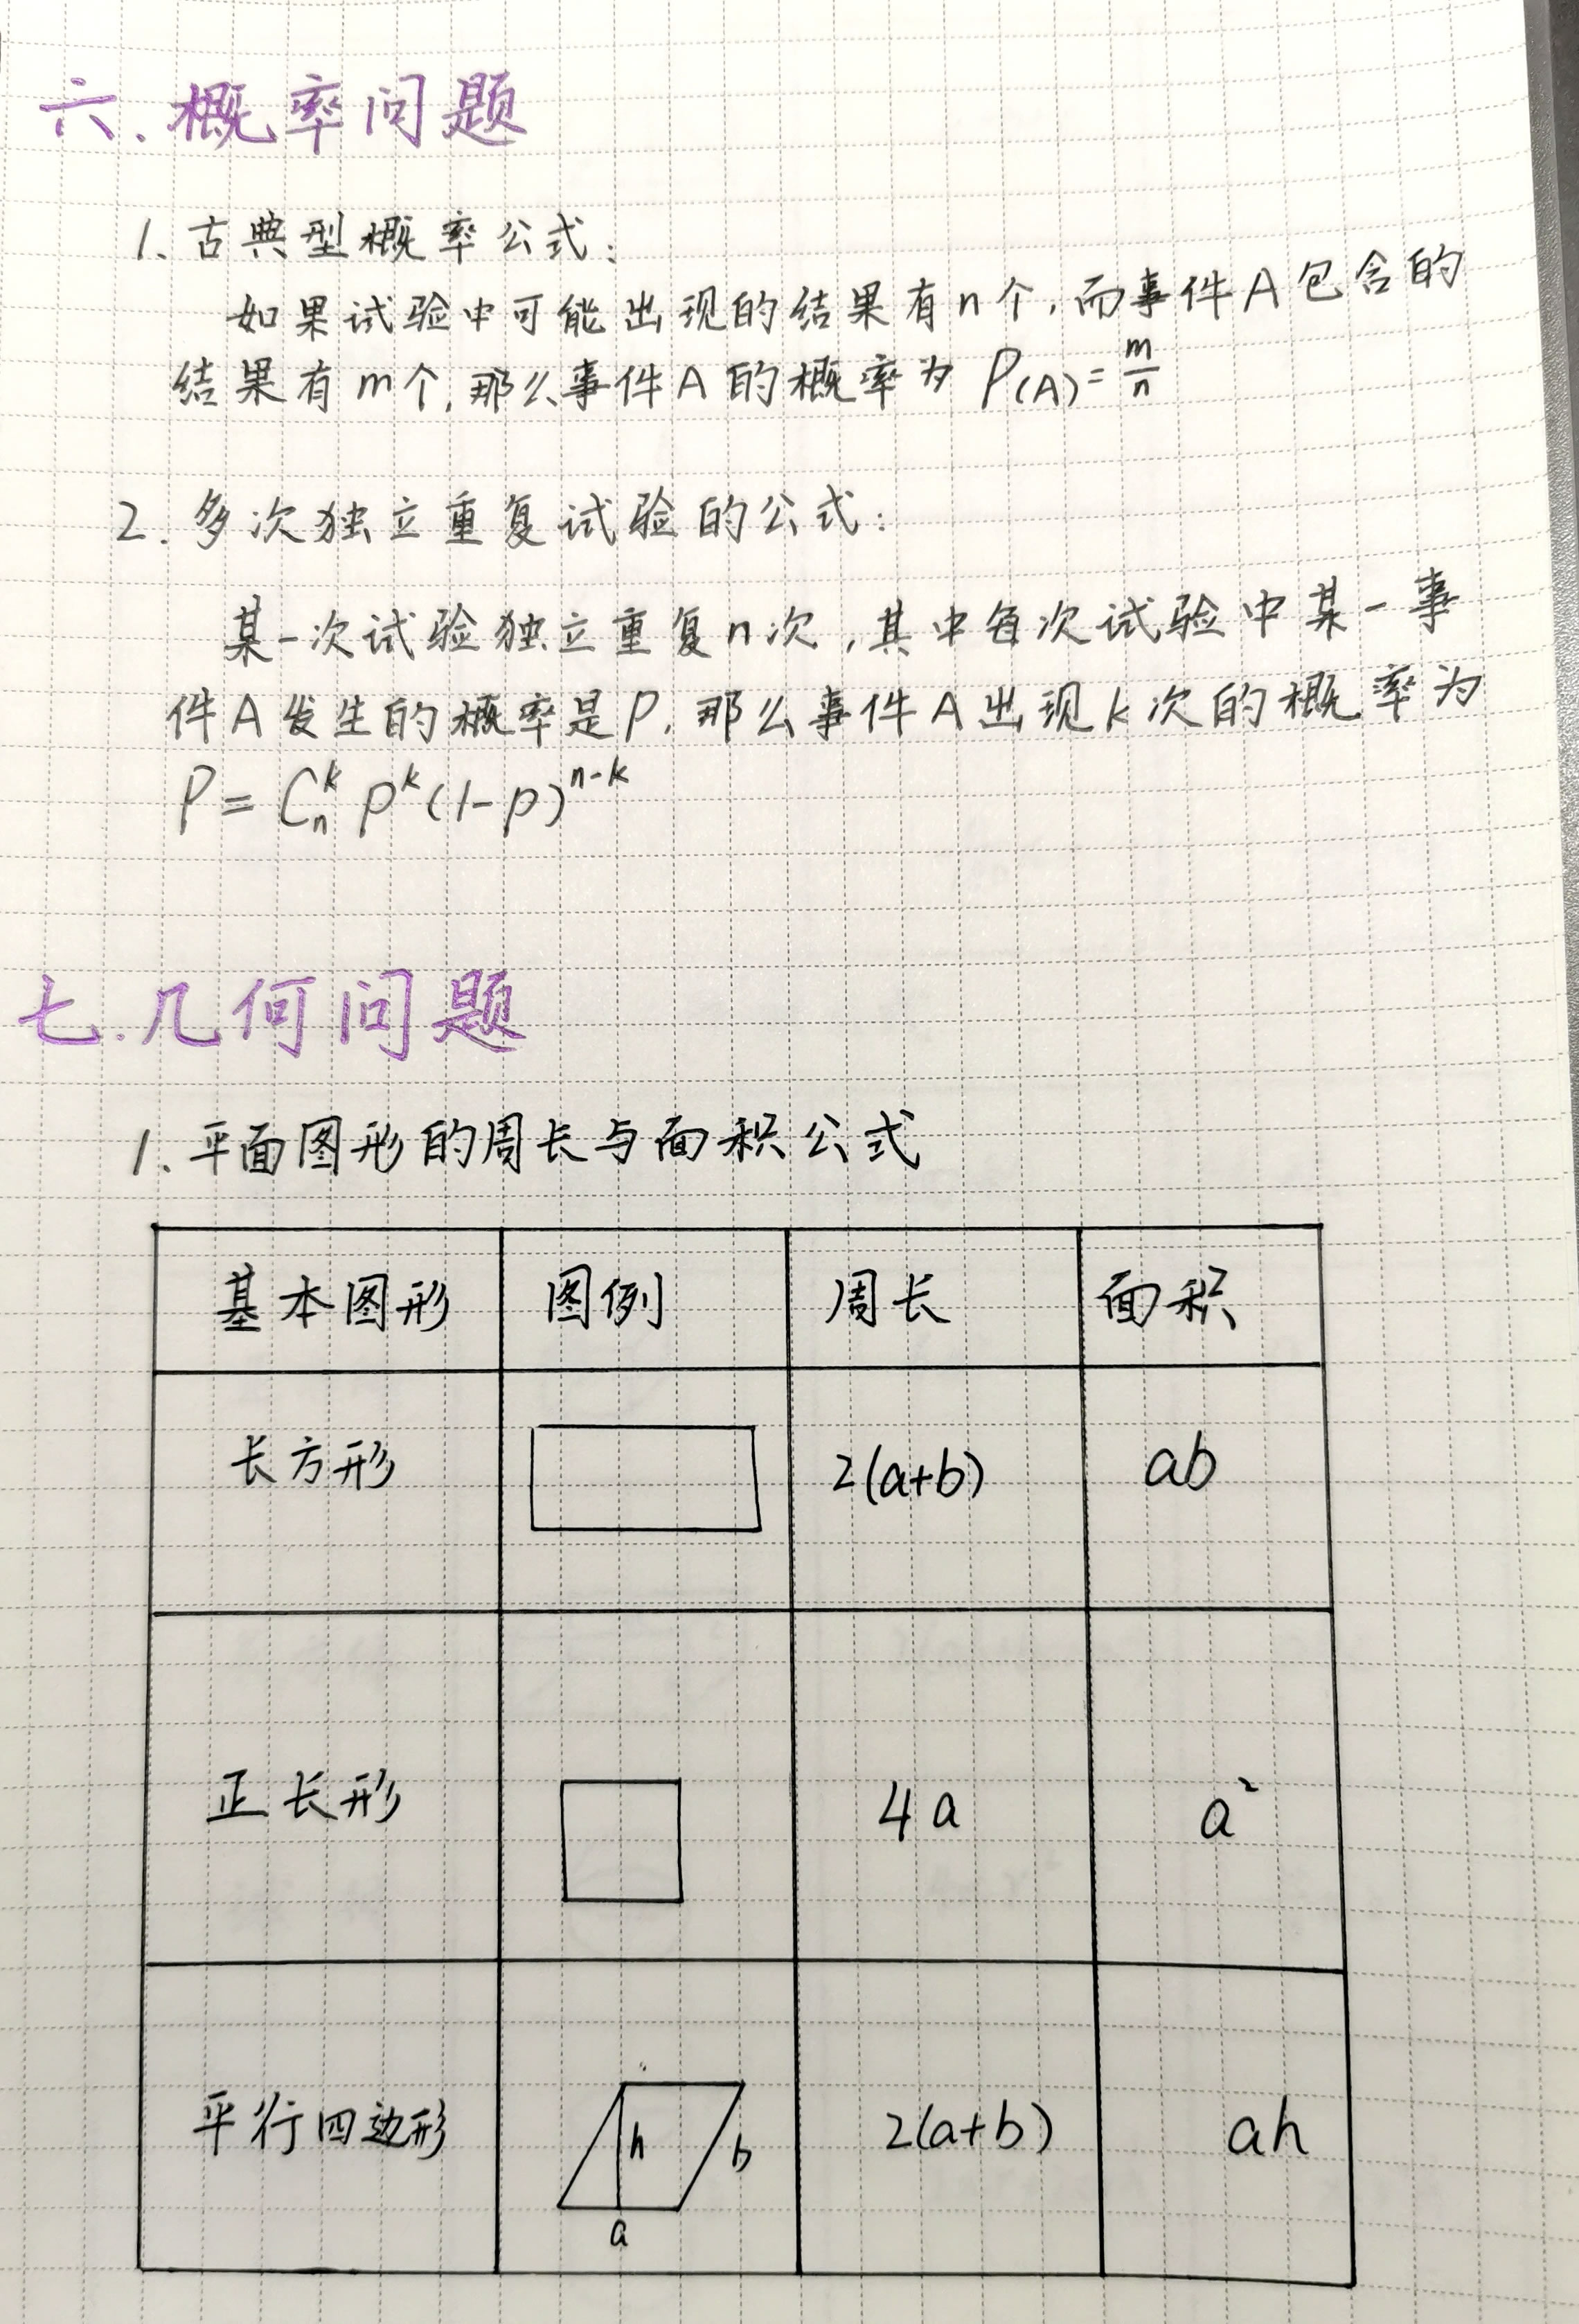 六.概率问题
1.古典型概率公式:
如果试验中可能出现的结果有n个,而事件A包含的
结果有m个,那么事件A的概率为 P(A)=m/n
2.多次独立重复试验的公式:
某一次试验独立重复n次,其中每次试验中某一事
件A发生的概率是P,那么事件A出现k次的概率为
P = C_n^k p^k (1-p)^{n-k}
七.几何问题
1.平面图形的周长与面积公式
基本图形 图例 周长 面积
长方形 2(a+b) ab
正长形 4a a²
平行四边形 h b a 2(a+b) ah